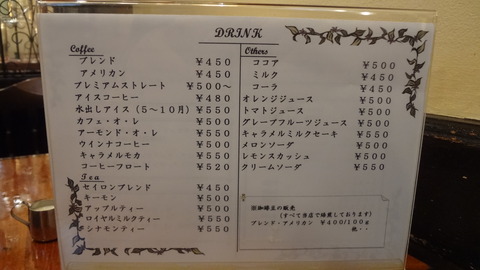 DRINK
Coffee
ブレンド ￥450
アメリカン ￥450
プレミアムストレート ￥500～
アイスコーヒー ￥480
水出しアイス（5～10月） ￥550
カフェ・オ・レ ￥500
アーモンド・オ・レ ￥550
ウインナコーヒー ￥500
キャラメルモカ ￥550
コーヒーフロート ￥520
Tea
セイロンブレンド ￥450
キーモン ￥500
アップルティー ￥500
ロイヤルミルクティー ￥550
シナモンティー ￥550
Others
ココア ￥500
ミルク ￥450
コーラ ￥450
オレンジジュース ￥500
トマトジュース ￥500
グレープフルーツジュース ￥500
キャラメルミルクセーキ ￥550
メロンソーダ ￥500
レモンスカッシュ ￥500
クリームソーダ ￥550
珈琲豆の販売
（すべて当店で焙煎しております）
ブレンド・アメリカン ￥400/100g